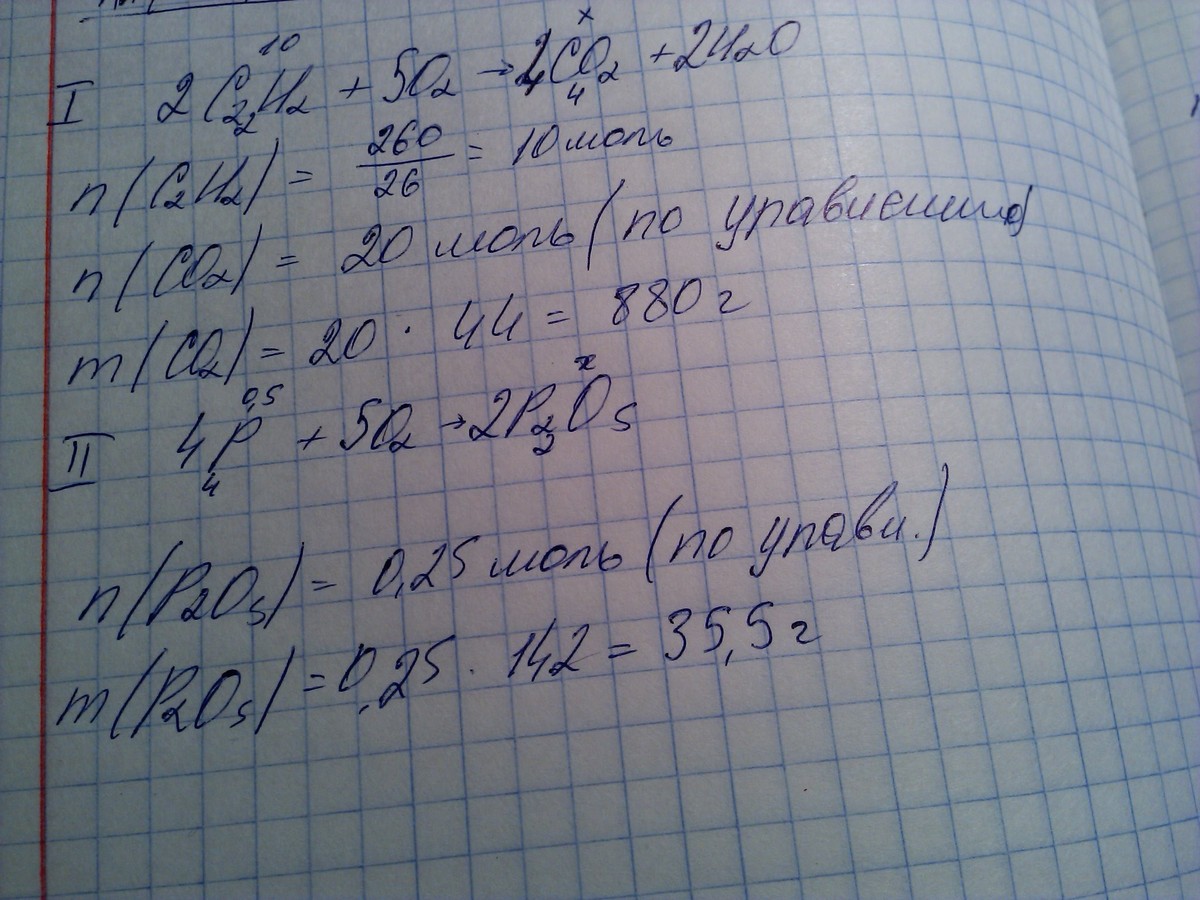 10 x
I 2C₂H₂ + 5O₂ → 4CO₂ + 2H₂O
2 4
n(C₂H₂) = 260/26 = 10 моль
n(CO₂) = 20 моль (по уравнению)
m(CO₂) = 20 · 44 = 880 г
0,5 x
II 4P + 5O₂ → 2P₂O₅
4 2
n(P₂O₅) = 0,25 моль (по уравн.)
m(P₂O₅) = 0,25 · 142 = 35,5 г